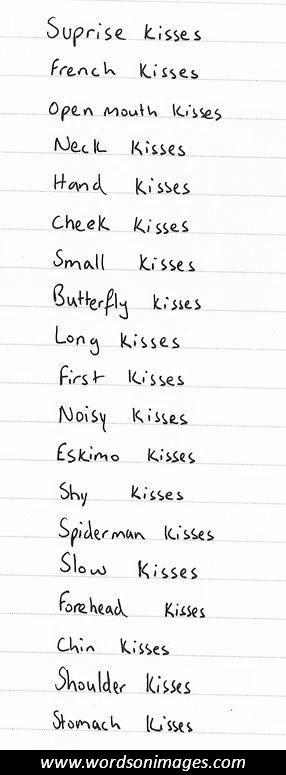 Suprise kisses
French kisses
Open mouth kisses
Neck kisses
Hand kisses
Cheek kisses
Small kisses
Butterfly kisses
Long kisses
First kisses
Noisy kisses
Eskimo kisses
Shy kisses
Spiderman kisses
Slow kisses
Forehead kisses
Chin kisses
Shoulder kisses
Stomach kisses
www.wordsonimages.com